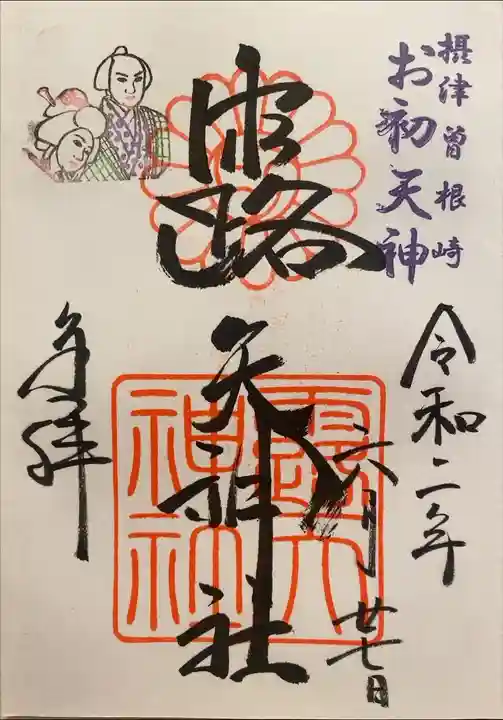 摂津曽根崎
お初天神
令和二年
六月
廿七日
露天神社
露天
神社
奉拝